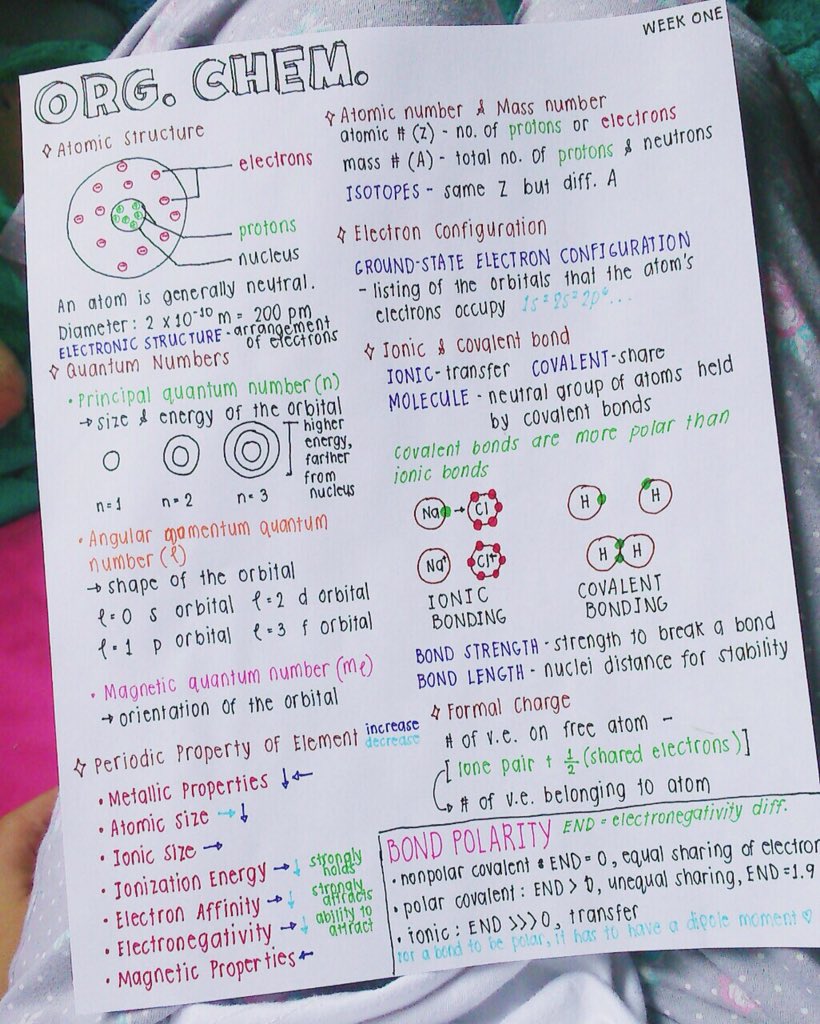 WEEK ONE
ORG. CHEM.
Atomic Structure
electrons
protons
nucleus
An atom is generally neutral.
Diameter: 2 x 10⁻¹⁰ m = 200 pm
ELECTRONIC STRUCTURE - arrangement
of electrons
Quantum Numbers
• Principal quantum number (n)
→ size & energy of the orbital
higher
energy,
farther
from
nucleus
n=1 n=2 n=3
• Angular momentum quantum
number (ℓ)
→ shape of the orbital
ℓ=0 s orbital ℓ=2 d orbital
ℓ=1 p orbital ℓ=3 f orbital
• Magnetic quantum number (mℓ)
→ orientation of the orbital
Periodic Property of Element increase
decrease
• Metallic Properties ↓←
• Atomic size → ↓
• Ionic Size →
• Ionization Energy → ↓ strongly
holds
• Electron Affinity → ↓ strongly
attracts
• Electronegativity → ↓ ability to
attract
• Magnetic Properties ←
Atomic number & Mass number
atomic # (Z) - no. of protons or electrons
mass # (A) - total no. of protons & neutrons
ISOTOPES - same Z but diff. A
Electron Configuration
GROUND-STATE ELECTRON CONFIGURATION
- listing of the orbitals that the atom's
electrons occupy 1s² 2s² 2p⁶...
Ionic & Covalent bond
IONIC - transfer COVALENT - share
MOLECULE - neutral group of atoms held
by covalent bonds
Covalent bonds are more polar than
ionic bonds
Na → Cl H H
Na⁺ Cl⁻ H H
IONIC
BONDING
COVALENT
BONDING
BOND STRENGTH - strength to break a bond
BOND LENGTH - nuclei distance for stability
Formal Charge
# of v.e. on free atom –
[lone pair + ½ (shared electrons)]
→ # of v.e. belonging to atom
BOND POLARITY END = electronegativity diff.
• nonpolar covalent : END = 0, equal sharing of electron
• polar covalent : END > 0, unequal sharing, END = 1.9
• ionic : END >>> 0, transfer
for a bond to be polar, it has to have a dipole moment ♡